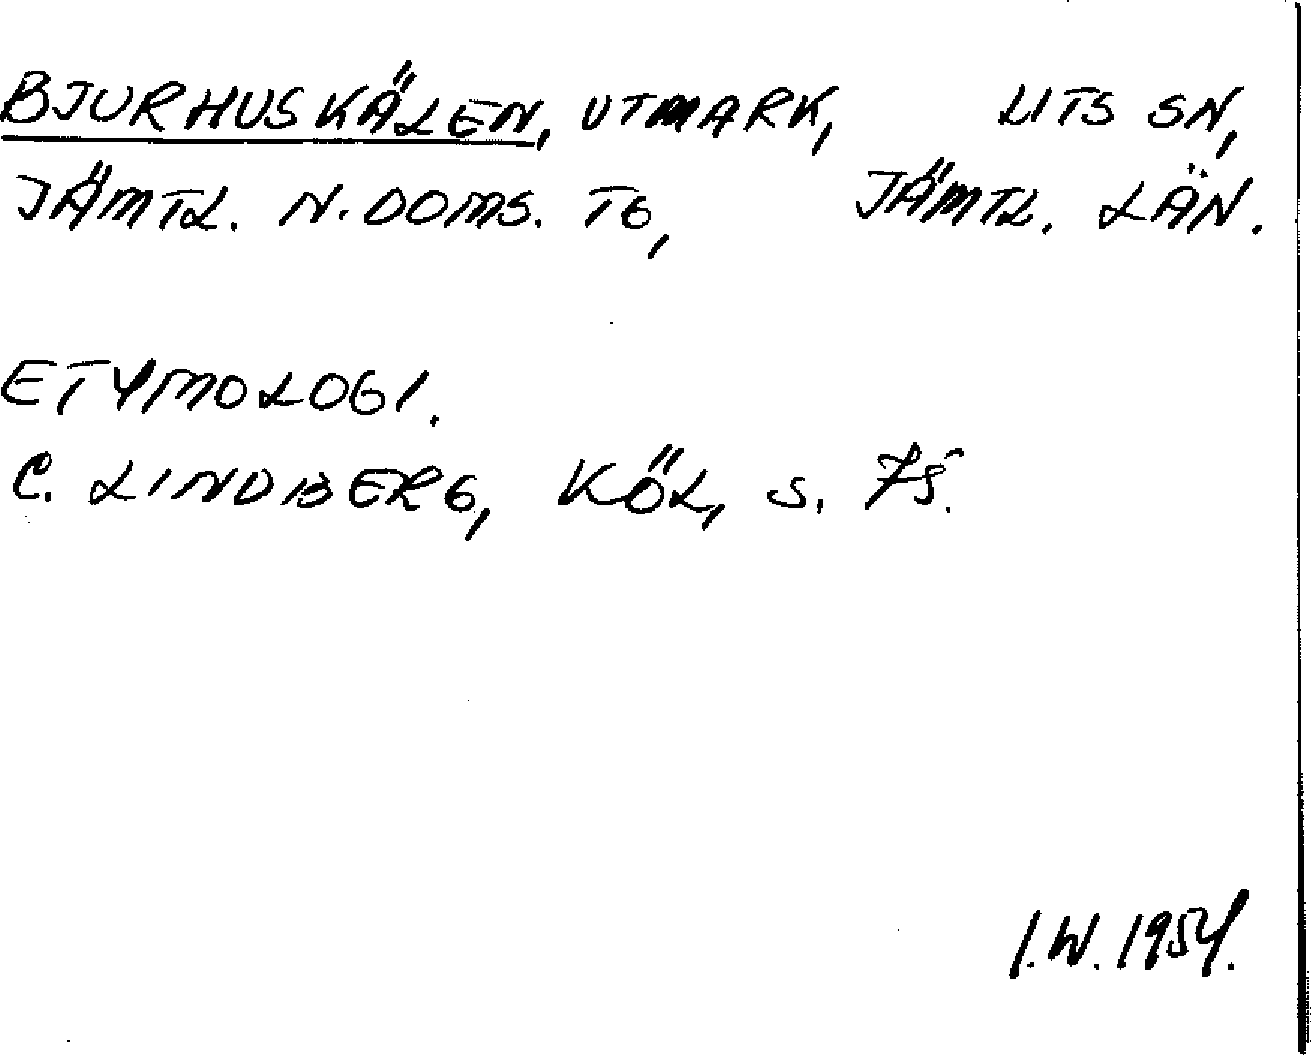 BJURHUSKÄLEN, UTMARK, LITS SN,
JÄMTL. N. DOMS. TG, JÄMTL. LÄN.
ETYMOLOGI.
C. LINDBERG, KÖL, S. 75.
I.W. 1954.